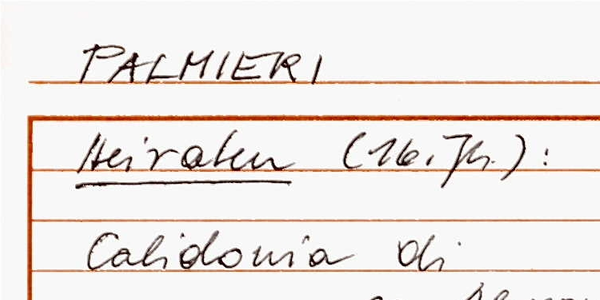 PALMIERI
Heiraten (16. Jh.):
Calidonia di